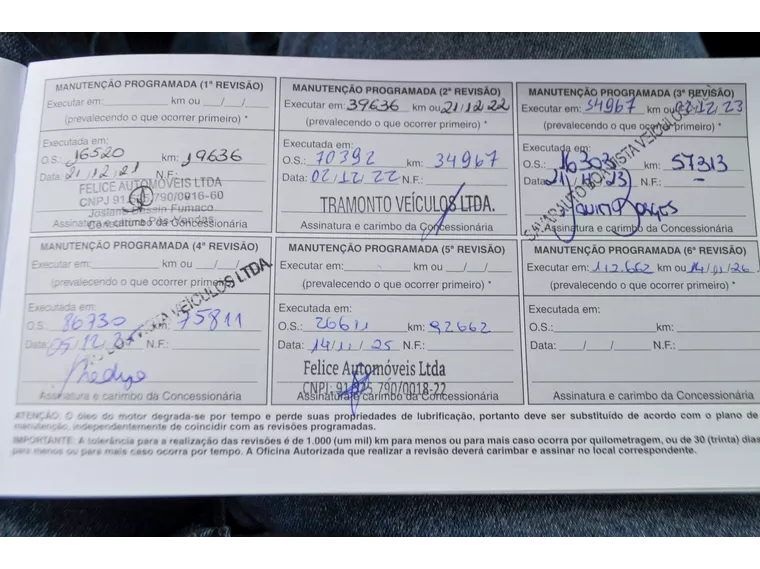 MANUTENÇÃO PROGRAMADA (1ª REVISÃO)
Executar em: km ou / /
(prevalecendo o que ocorrer primeiro) *
Executada em:
O.S.: 16520 km: 19636
Data: 21/12/21 N.F.:
FELICE AUTOMÓVEIS LTDA
CNPJ 790/0016-60
Pós-Vendas
Assinatura e carimbo da Concessionária
MANUTENÇÃO PROGRAMADA (2ª REVISÃO)
Executar em: 39636 km ou 21/12/22
(prevalecendo o que ocorrer primeiro) *
Executada em:
O.S.: 70392 km: 34967
Data: 02/12/22 N.F.:
TRAMONTO VEÍCULOS LTDA.
Assinatura e carimbo da Concessionária
MANUTENÇÃO PROGRAMADA (3ª REVISÃO)
Executar em: 54967 km ou 02/12/23
(prevalecendo o que ocorrer primeiro) *
Executada em:
O.S.: 16303 km: 57313
Data: 23 N.F.: -
Assinatura e carimbo da Concessionária
MANUTENÇÃO PROGRAMADA (4ª REVISÃO)
Executar em: km ou / /
(prevalecendo o que ocorrer primeiro) *
VEÍCULOS LTDA.
Executada em:
O.S.: 86730 km: 75811
Data: 05/12/ N.F.:
Assinatura e carimbo da Concessionária
MANUTENÇÃO PROGRAMADA (5ª REVISÃO)
Executar em: km ou / /
(prevalecendo o que ocorrer primeiro) *
Executada em:
O.S.: 26611 km: 92662
Data: 14/11/25 N.F.:
Felice Automóveis Ltda
CNPJ: 790/0018-22
Assinatura e carimbo da Concessionária
MANUTENÇÃO PROGRAMADA (6ª REVISÃO)
Executar em: 112.662 km ou 14/11/26
(prevalecendo o que ocorrer primeiro) *
Executada em:
O.S.: km:
Data: / / N.F.:
Assinatura e carimbo da Concessionária
ATENÇÃO: O óleo do motor degrada-se por tempo e perde suas propriedades de lubrificação, portanto deve ser substituído de acordo com o plano de
manutenção, independentemente de coincidir com as revisões programadas.
IMPORTANTE: A tolerância para a realização das revisões é de 1.000 (um mil) km para menos ou para mais caso ocorra por quilometragem, ou de 30 (trinta) dias
para menos ou para mais caso ocorra por tempo. A Oficina Autorizada que realizar a revisão deverá carimbar e assinar no local correspondente.